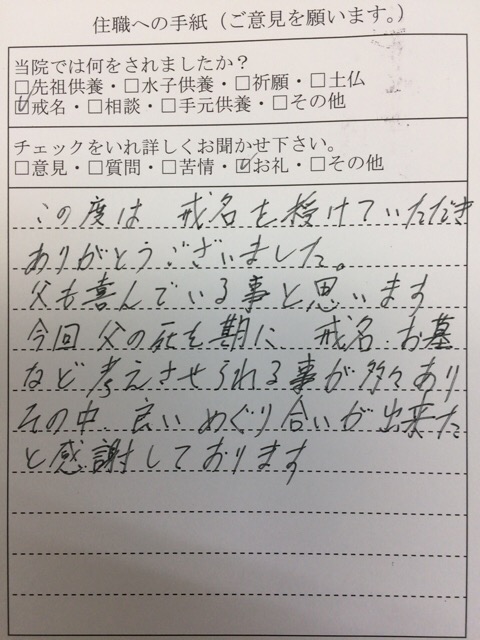 住職への手紙（ご意見を願います。）
当院では何をされましたか？
□先祖供養・□水子供養・□祈願・□土仏
☑戒名・□相談・□手元供養・□その他
チェックをいれ詳しくお聞かせ下さい。
□意見・□質問・□苦情・☑お礼・□その他
この度は 戒名を授けていただき
ありがとうございました。
父も喜んでいる事と思います
今回 父の死を期に、戒名、お墓
など 考えさせられる事が多々あり
その中、良い めぐり合いが出来た
と感謝しております